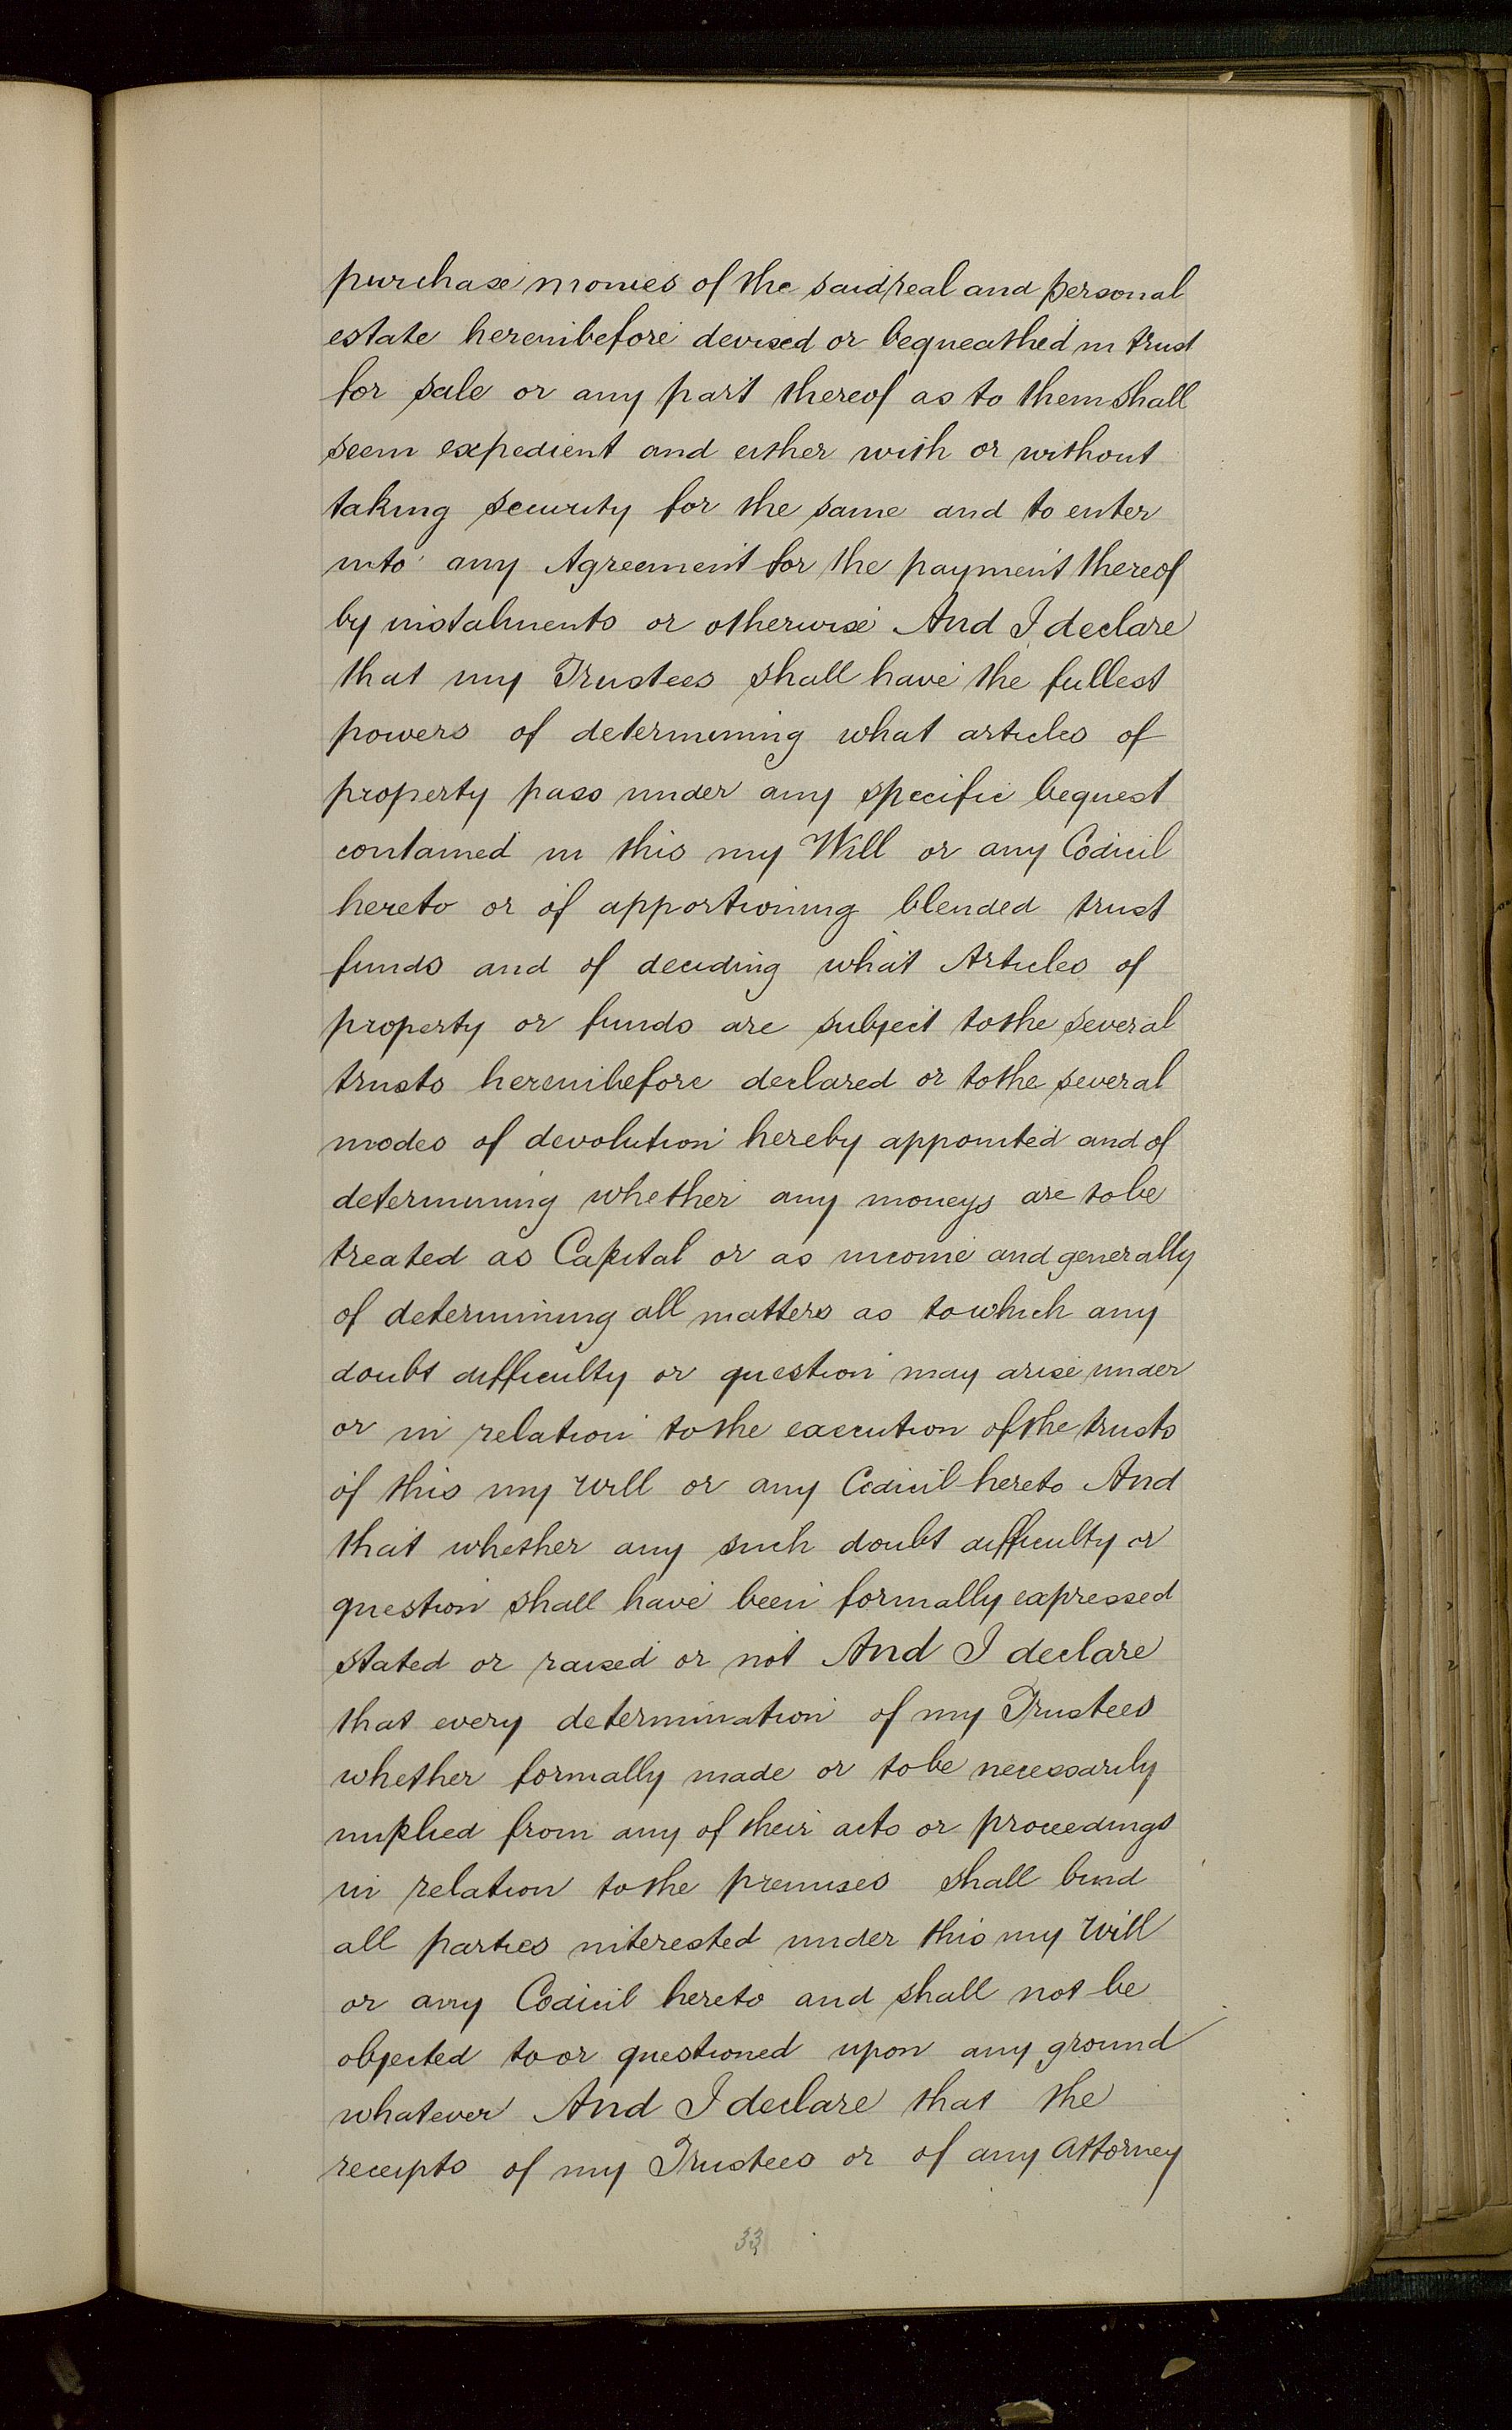 purchase monies of the said real and personal
estate hereinbefore devised or bequeathed in trust
for sale or any part thereof as to them shall
seem expedient and either with or without
taking security for the same and to enter
into any Agreement for the payment thereof
by instalments or otherwise And I declare
that my Trustees shall have the fullest
powers of determining what articles of
property pass under any specific bequest
contained in this my Will or any Codicil
hereto or of apportioning blended trust
funds and of deciding what Articles of
property or funds are subject to the several
trusts hereinbefore declared or to the several
modes of devolution hereby appointed and of
determining whether any moneys are to be
treated as Capital or as income and generally
of determining all matters as to which any
doubt difficulty or question may arise under
or in relation to the execution of the trusts
of this my Will or any Codicil hereto And
that whether any such doubt difficulty or
question shall have been formally expressed
stated or raised or not And I declare
that every determination of my Trustees
whether formally made or to be necessarily
implied from any of their acts or proceedings
in relation to the premises shall bind
all parties interested under this my Will
or any Codicil hereto and shall not be
objected to or questioned upon any ground
whatever And I declare that the
receipts of my Trustees or of any Attorney
33